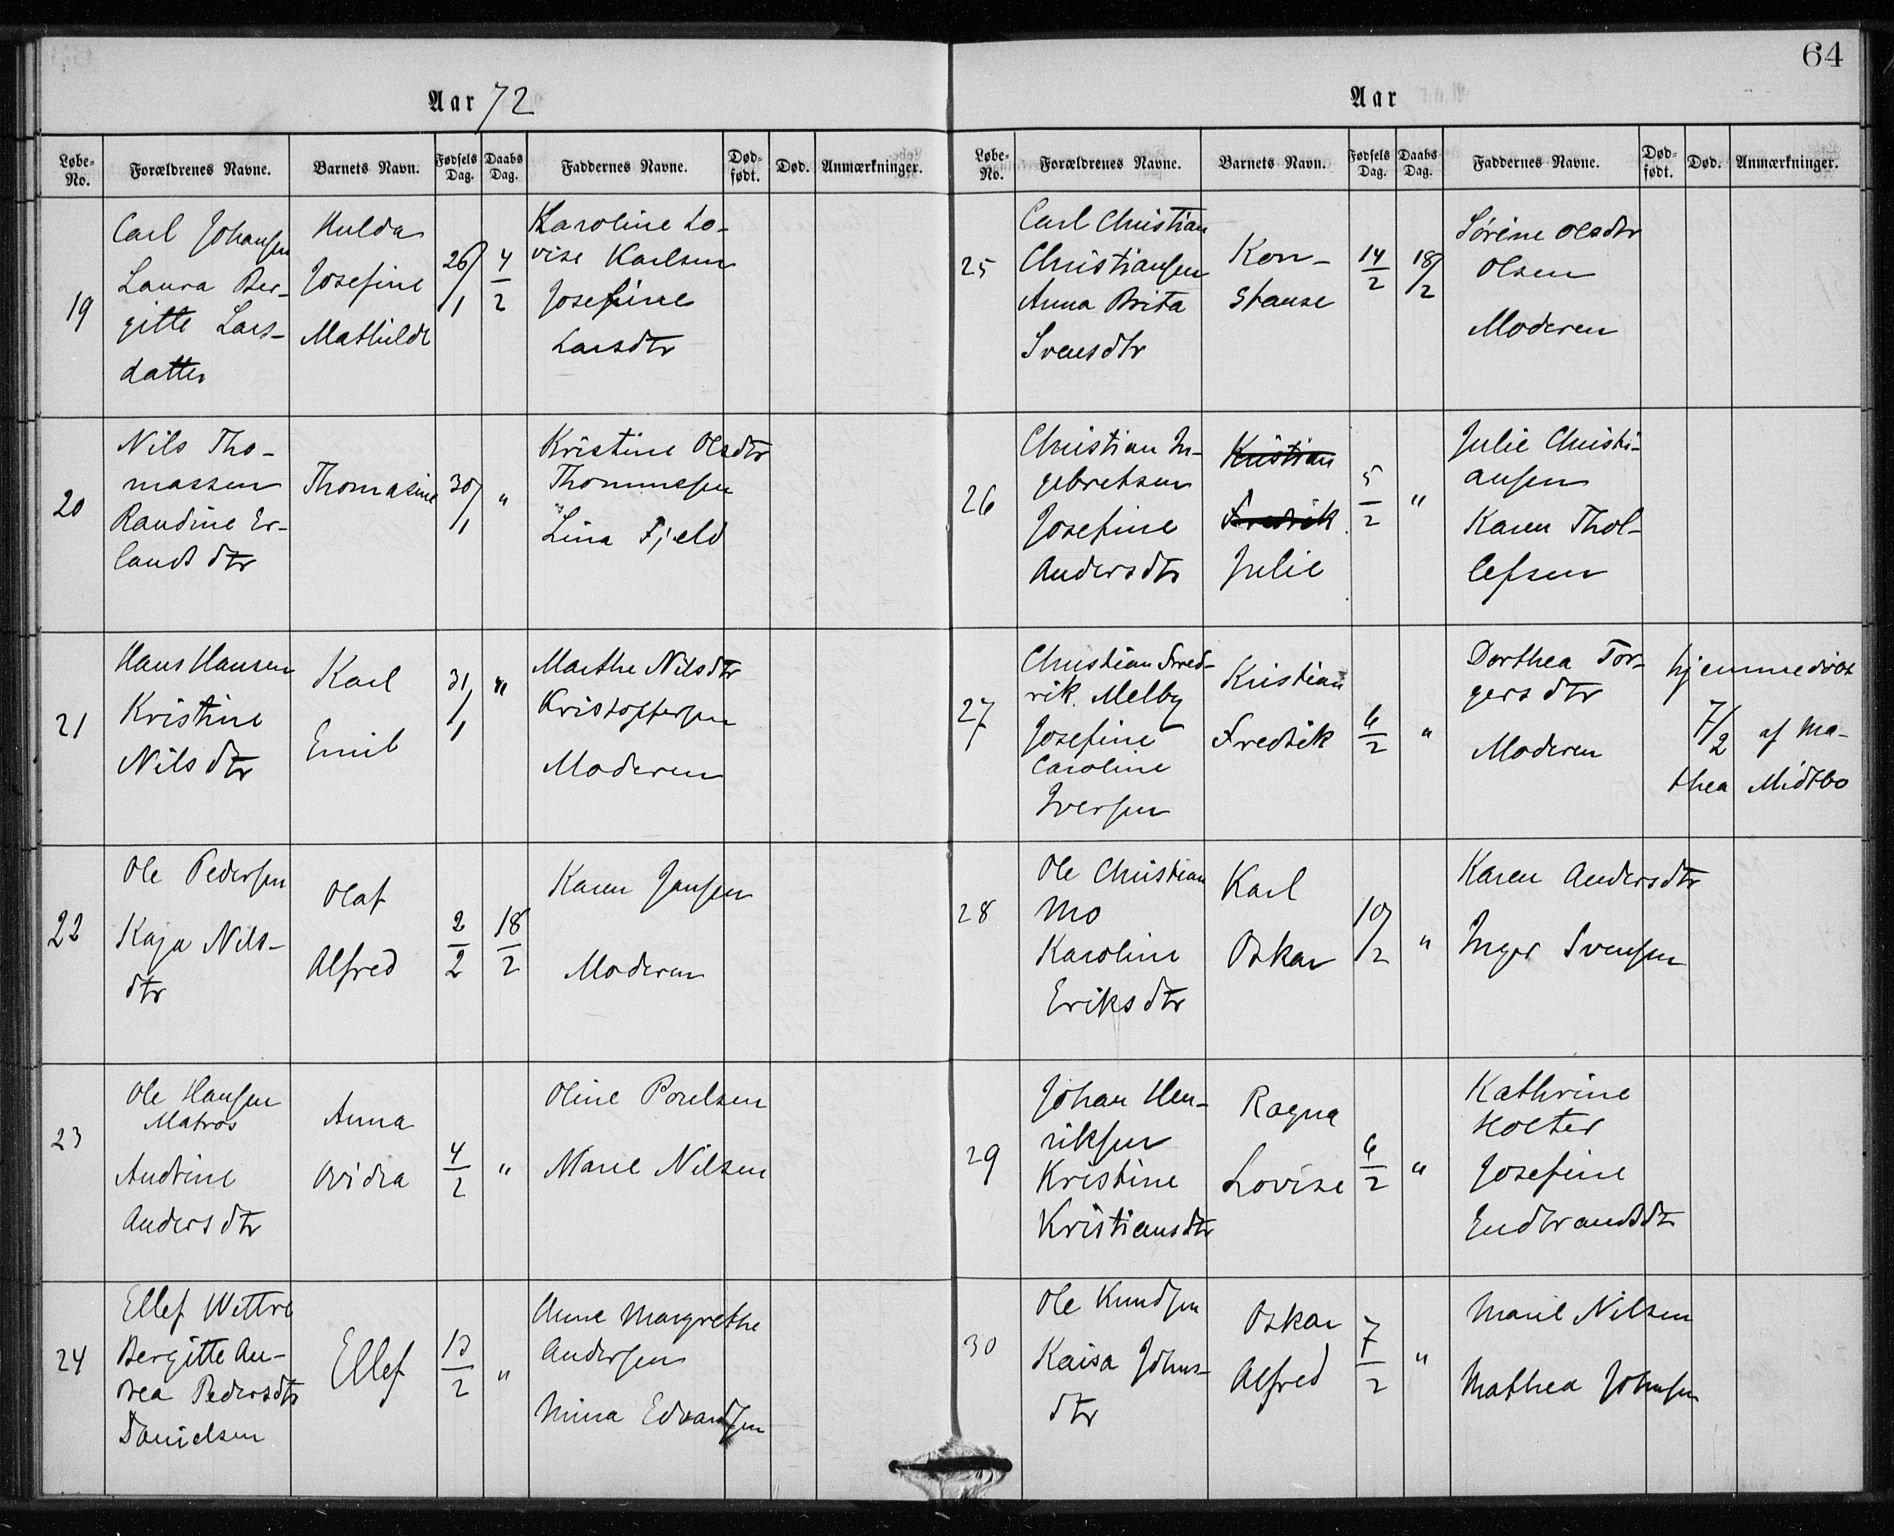 64
Aar 72
Løbe-No. Forældrenes Navne. Barnets Navn. Fødsels Dag. Daabs Dag. Faddernes Navne. Død-født. Død. Anmærkninger.
19
Carl Johansen
Laura Ber-
gitte Lars-
datter
Hulda
Josefine
Mathilde
26/1
4/2
Karoline Lo-
vise Karlsen
Josefine
Larsdtr
20
Nils Tho-
massen
Randine Er-
landsdtr
Thomasine
30/1
"
Kristine Olsdtr
Thommesen
Lina Fjeld
21
Hans Hansen
Kristine
Nilsdtr
Karl
Emil
31/1
"
Marthe Nilsdtr
Kristoffersen
Moderen
22
Ole Pedersen
Kaja Nils-
dtr
Olaf
Alfred
2/2
18/2
Karen Jansen
Moderen
23
Ole Hansen
Matros
Andrine
Andersdtr
Anna
Ovidia
4/2
"
Oline Poulsen
Marie Nilsen
24
Ellef Wettre
Bergitte An-
drea Pedersdtr
Danielsen
Ellef
13/2
"
Anne Margrethe
Andersen
Mina Edvardsen
Aar
Løbe-No. Forældrenes Navne. Barnets Navn. Fødsels Dag. Daabs Dag. Faddernes Navne. Død-født. Død. Anmærkninger.
25
Carl Christian
Christiansen
Anna Brita
Svensdtr
Kon-
stanse
14/2
18/2
Sørine Olsdtr
Olsen
Moderen
26
Christian In-
gebretsen
Josefine
Andersdtr
Kristian
Fredrik
Julie
5/2
"
Julie Christi-
ansen
Karen Thol-
lefsen
27
Christian Fred-
rik Melby
Josefine
Caroline
Iversen
Kristian
Fredrik
6/2
"
Dorthea Tor-
gersdtr
Moderen
hjemmedøbt
7/2 af Ma-
thea Midtbo
28
Ole Christian
Mo
Karoline
Eriksdtr
Karl
Oskar
10/2
"
Karen Andersdtr
Inger Svensen
29
Johan Hen-
riksen
Kristine
Kristiansdtr
Ragna
Lovise
6/2
"
Kathrine
Holter
Josefine
Endbrandsdtr
30
Ole Knudsen
Kaisa Johns-
dtr
Oskar
Alfred
7/2
"
Marie Nilsen
Mathea Johnsen